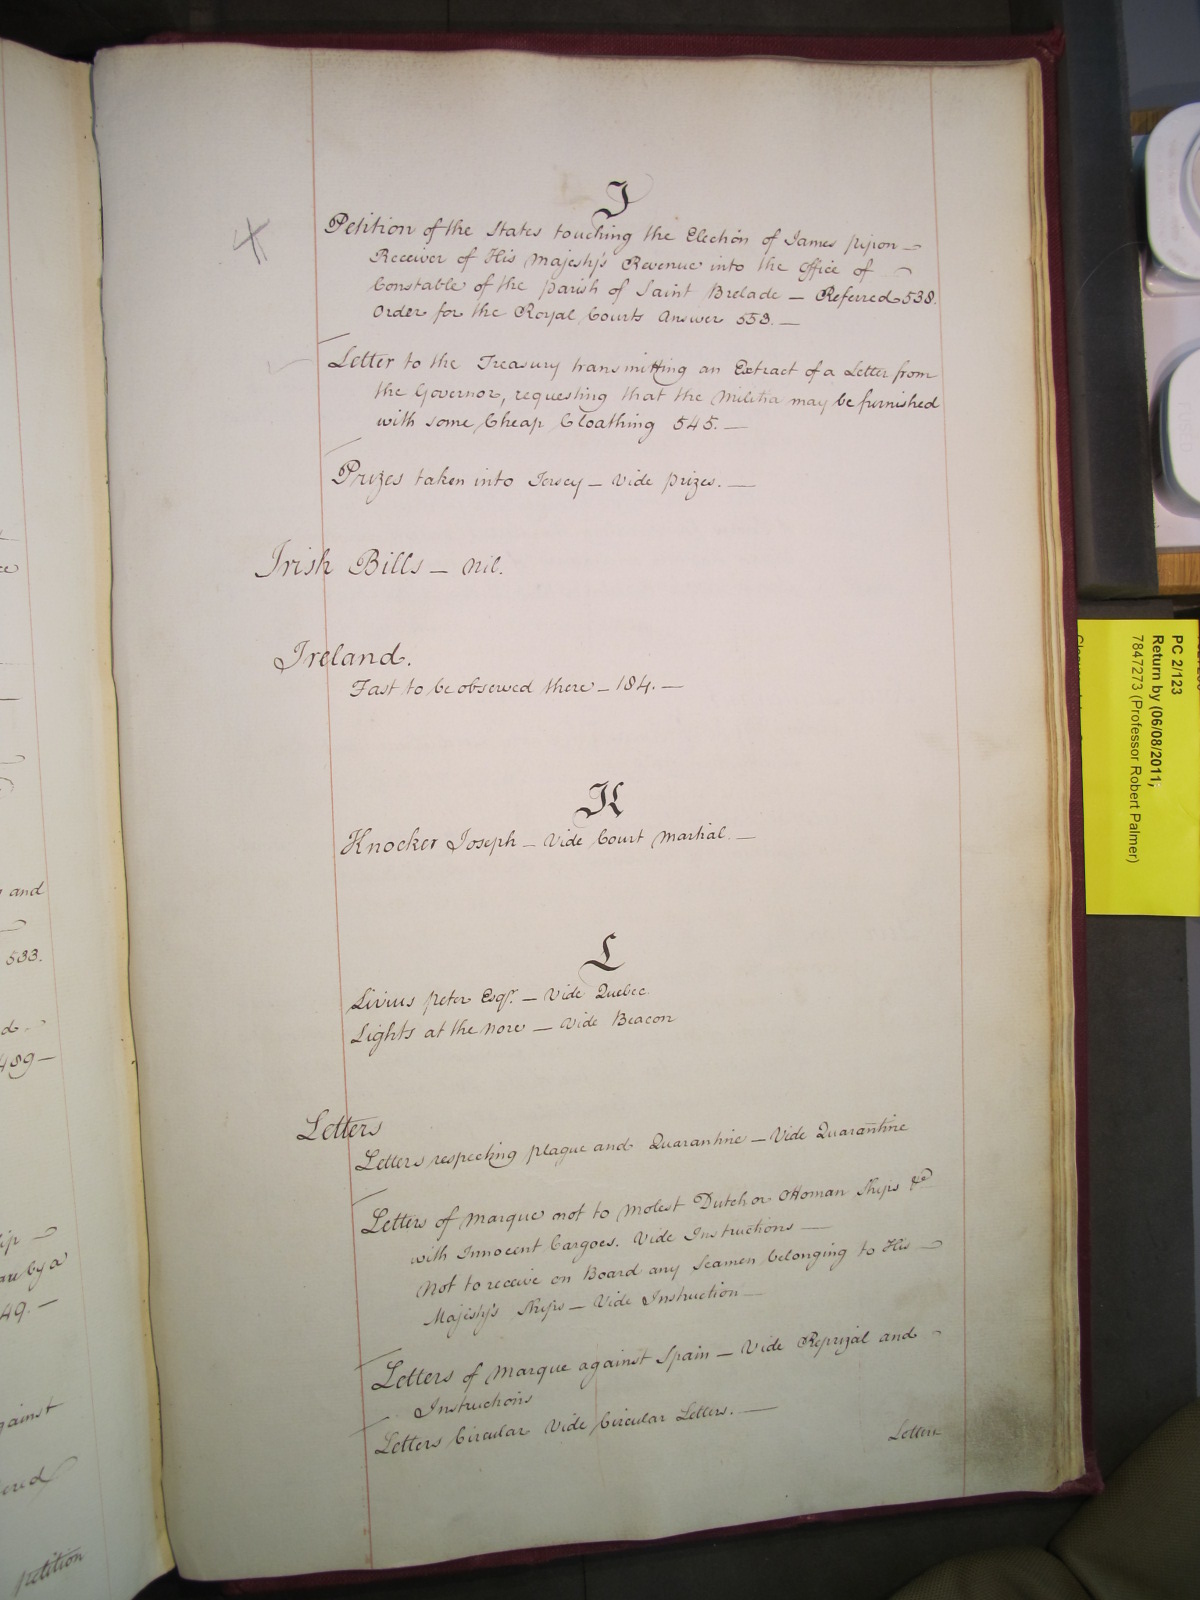 ce
and
533.
d.
489
ip
au by a
49.
gainst
ered
petition
J
Petition of the States touching the Election of James Pipon
Receiver of His Majesty's Revenue into the Office of
Constable of the Parish of Saint Brelade — Referred 538.
Order for the Royal Courts Answer 553. —
Letter to the Treasury transmitting an Extract of a Letter from
the Governor, requesting that the Militia may be furnished
with some Cheap Cloathing 545. —
Prizes taken into Jersey — Vide Prizes. —
Irish Bills — Nil.
Ireland.
Fast to be observed there — 184. —
K
Knocker Joseph — Vide Court Martial. —
L
Livius Peter Esqr. — Vide Quebec.
Lights at the Nore — Vide Beacon
Letters
Letters respecting Plague and Quarantine — Vide Quarantine
Letters of Marque not to Molest Dutch or Ottoman Ships &ca
with Innocent Cargoes. Vide Instructions —
Not to receive on Board any Seamen belonging to His
Majesty's Ships — Vide Instruction —
Letters of Marque against Spain — Vide Reprizal and
Instructions
Letters Circular Vide Circular Letters. —
Letters
PC 2/123
Return by (06/08/2011;
7847273 (Professor Robert Palmer)